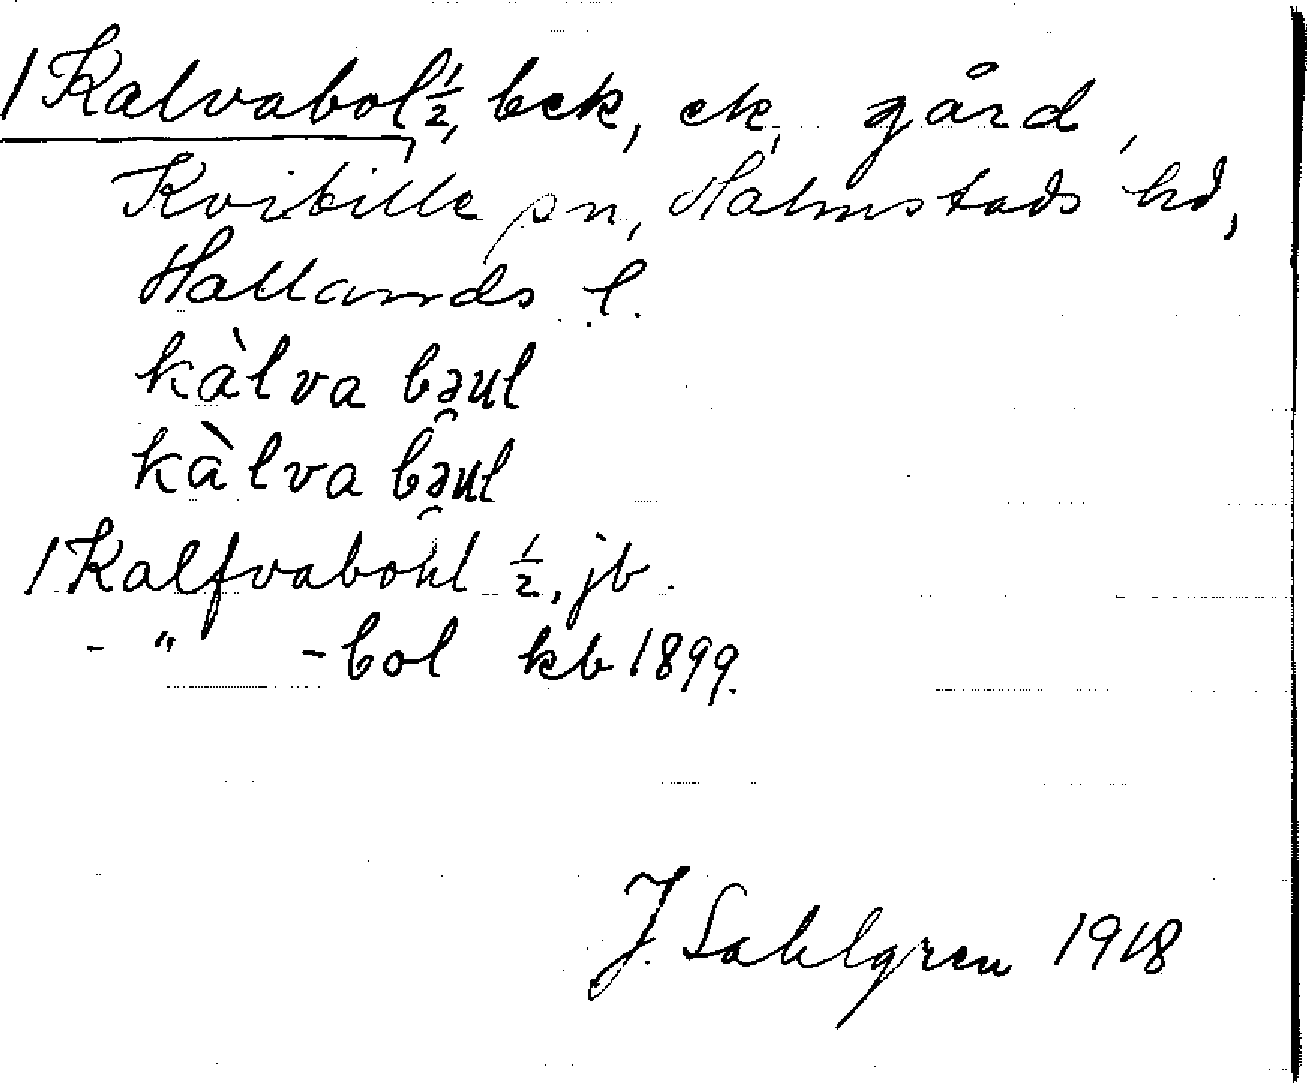 1 Kalvabol ½, bek, ek, gård,
Kvibille sn, Halmstads hd,
Hallands l.
kàlva bəul
kàlva bəul
1 Kalfvabohl ½, jb.
- " -bol kb 1899.
J. Sahlgren 1918